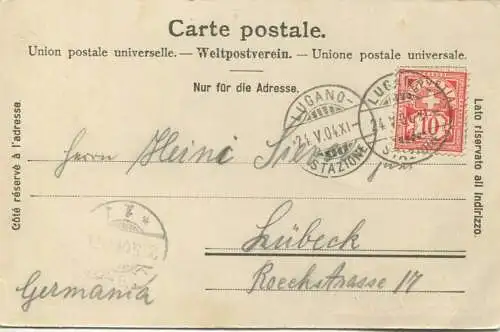 Carte postale.
Union postale universelle. — Weltpostverein. — Unione postale universale.
Nur für die Adresse.
Côté réservé à l'adresse.
Lato riservato all indirizzo.
LUGANO-
24 V.04 XI-
STAZIONE
LUGANO-
24 V.
STAZIONE
HELVETIA
10
Herrn Heini
Lübeck
Roeckstrasse 17
Germania